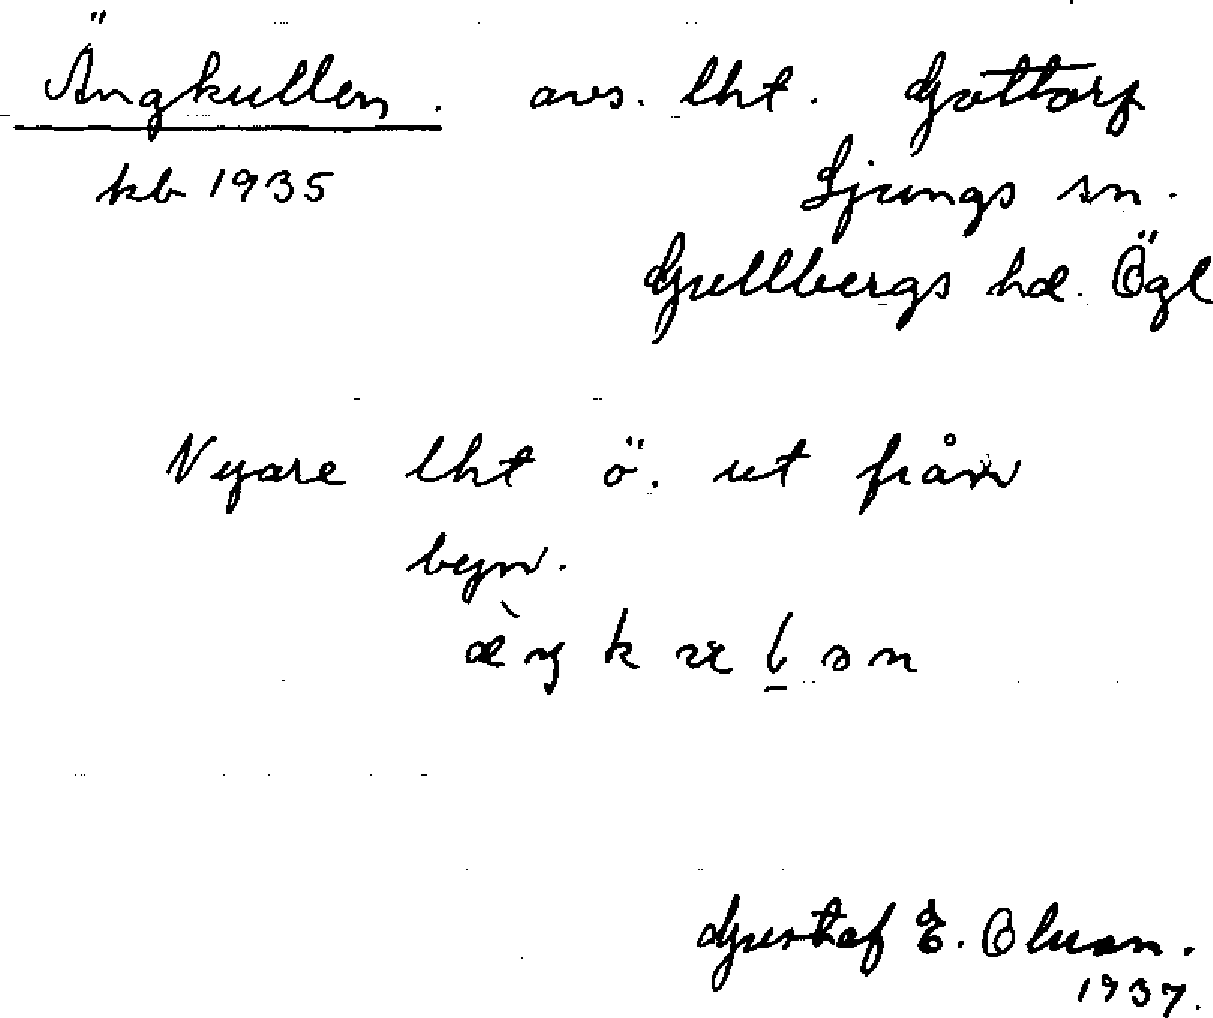 Ängkullen. avs. lht. Gottorp
kb 1935 Ljungs sn.
Gullbergs hd. Ögl
Nyare lht ö. ut från
byn.
Gustaf E. Olsson.
1937.